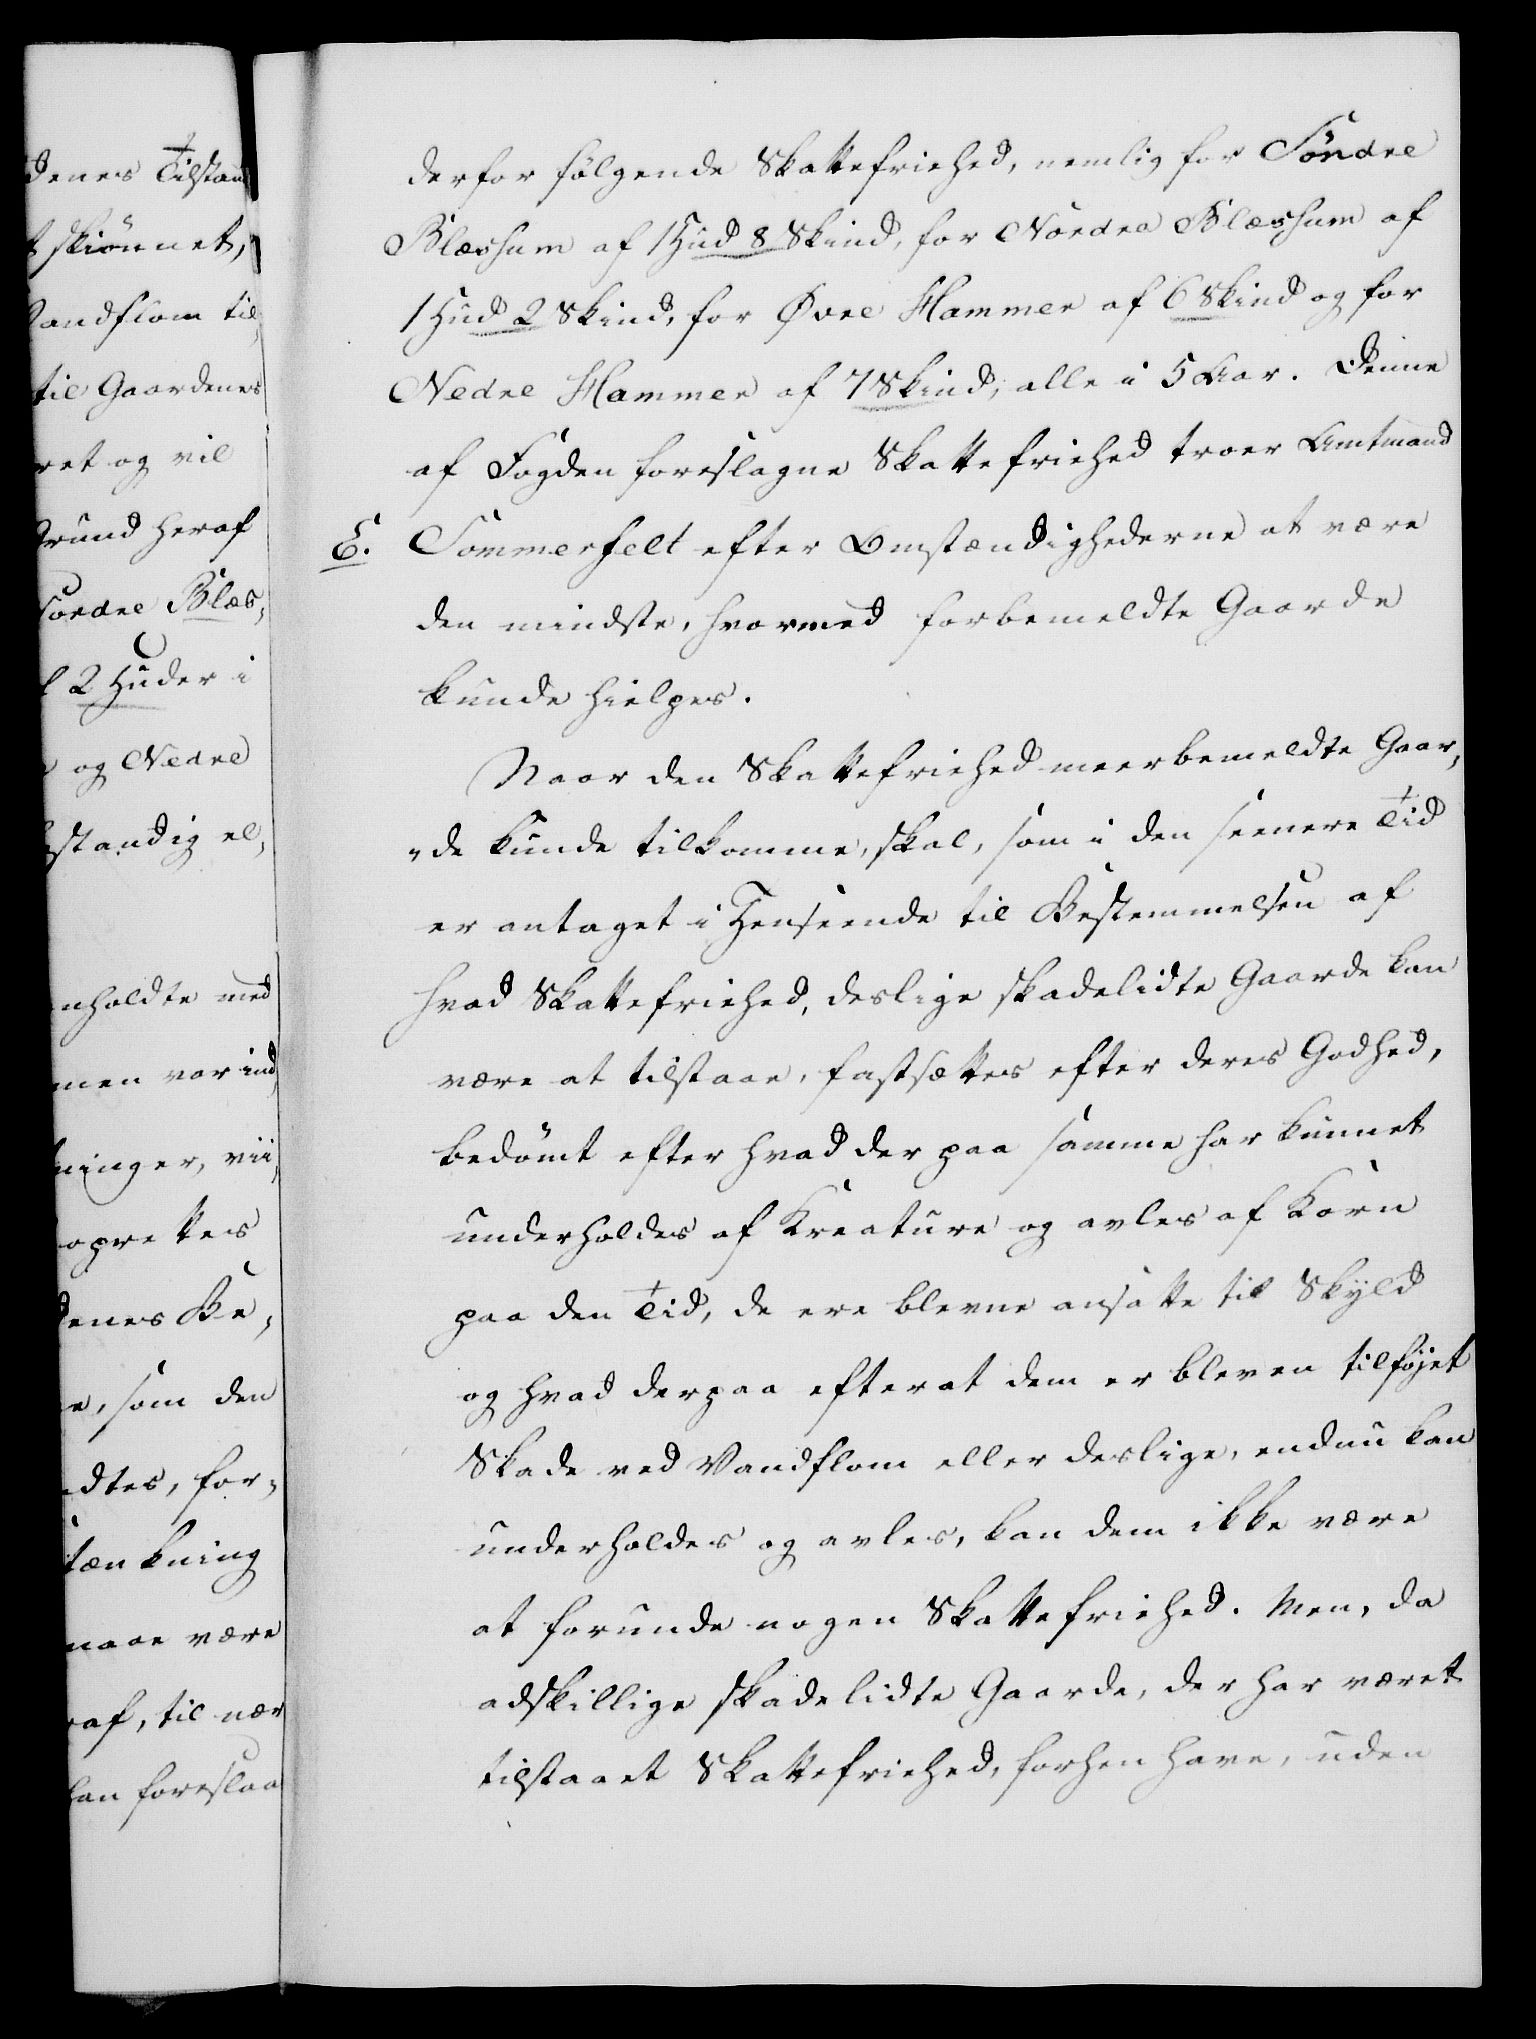 denes Tilstand
t skiönnet,
Vandflom til
til Gaardenes
ret og vil
Grund heraf
Söndre Blæs,
l 2 Huder i
og Nedre
standig el,
nholdte med
men var ind
ninger, vii,
oprettes
denes Be,
e, som den
dtes, for,
tænkning
maae være
raf, til nær
han foreslaa
derfor følgende Skattefriehed, nemlig for Söndre
Blæshum af 1 Hud 8 Skind, for Nordre Blæshum af
1 Hud 2 Skind, for Øvre Hammer af 6 Skind og for
Nedre Hammer af 7 Skind, alle i 5 Aar. Denne
af Fogden foreslagne Skattefriehed troer Amtmand
E. Sommerfelt efter Omstændighederne at være
den mindste, hvormed forbemeldte Gaarde
kunde hielpes.
Naar den Skattefriehed meerbemeldte Gaar,
„de kunde tilkomme, skal, som i den seenere Tid
er antaget i Henseende til Bestemmelsen af
hvad Skattefriehed, deslige skadelidte Gaarde kan
være at tilstaae, fastsættes efter deres Godhed,
bedömt efter hvad der paa samme har kunnet
underholdes af Kreature og avles af Korn
paa den Tid, de ere blevne ansatte til Skyld
og hvad derpaa efterat dem er bleven tilføjet
Skade ved Vandflom eller deslige, endnu kan
underholdes og avles, kan dem ikke være
at forunde nogen Skattefriehed. Men, da
adskillige skadelidte Gaarde, der har været
tilstaaet Skattefriehed, forhen have, uden